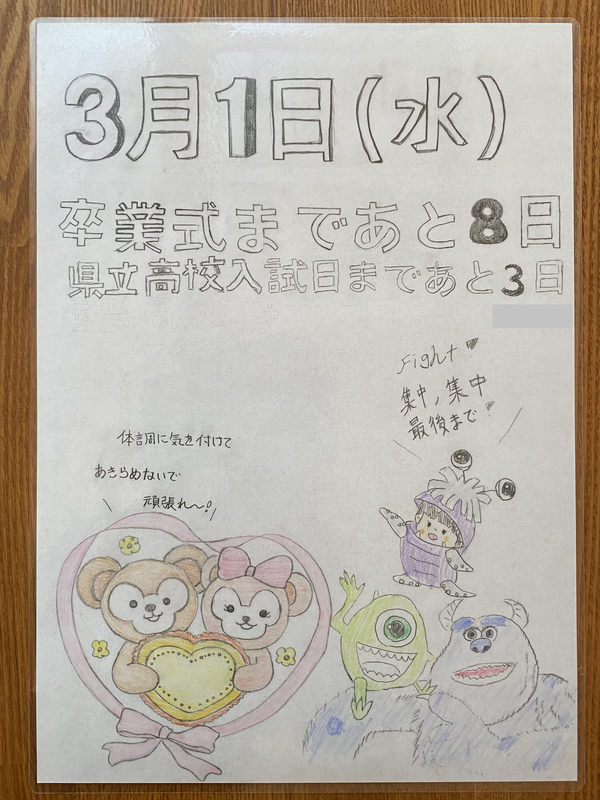 3月1日(水)
卒業式まであと8日
県立高校入試日まであと3日
Fight♥
集中,集中
最後まで!
体調に気を付けて
あきらめないで
頑張れ〜!